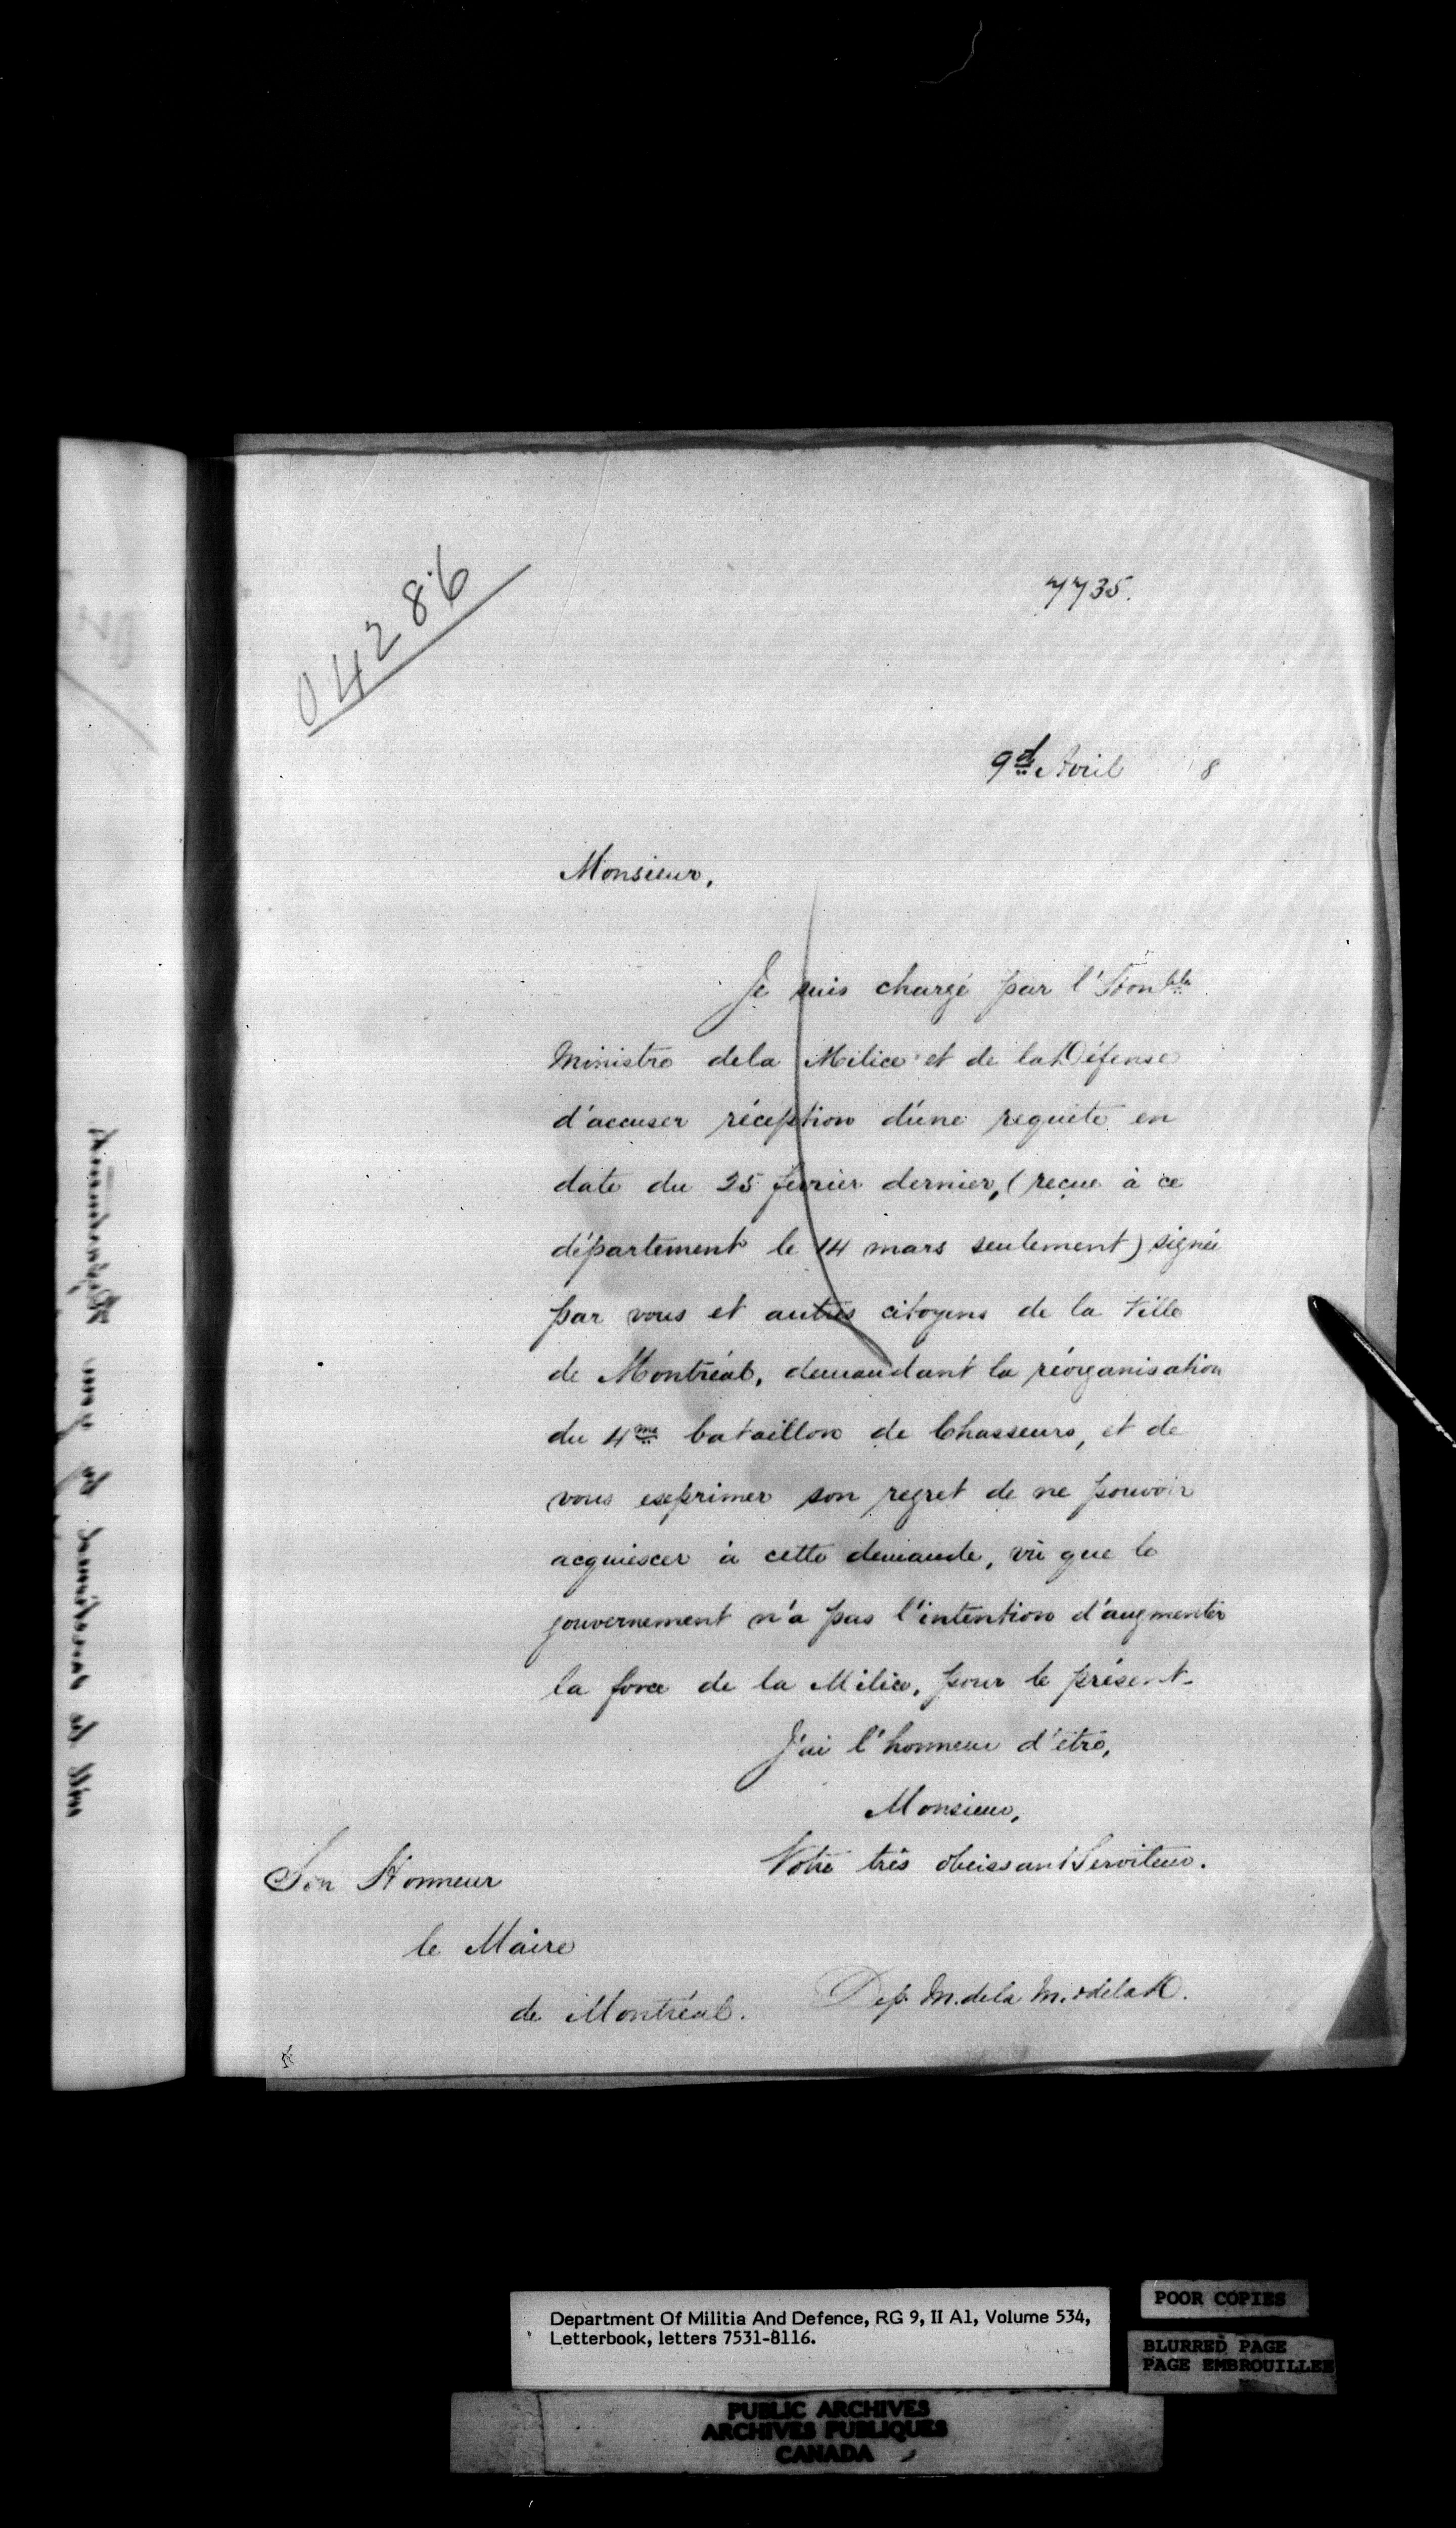 04286
7735.
9d Avril 8
Monsieur,
Je suis chargé par l'Honble
Ministre de la Milice et de la Défense
d'accuser réception d'une requête en
date du 25 février dernier, (reçue à ce
département le 14 mars seulement) signée
par vous et autres citoyens de la Ville
de Montréal, demandant la réorganisation
du 4me bataillon de Chasseurs, et de
vous exprimer son regret de ne pouvoir
acquiescer à cette demande, vû que le
gouvernement n'a pas l'intention d'augmenter
la force de la Milice, pour le présent.
J'ai l'honneur d'être,
Monsieur,
Votre très obeissant Serviteur.
Son Honneur
le Maire
de Montréal.
Dep. M. de la M. & de la D.
Department Of Militia And Defence, RG 9, II A1, Volume 534,
Letterbook, letters 7531-8116.
POOR COPIES
BLURRED PAGE
PAGE EMBROUILLEE
PUBLIC ARCHIVES
ARCHIVES PUBLIQUES
CANADA